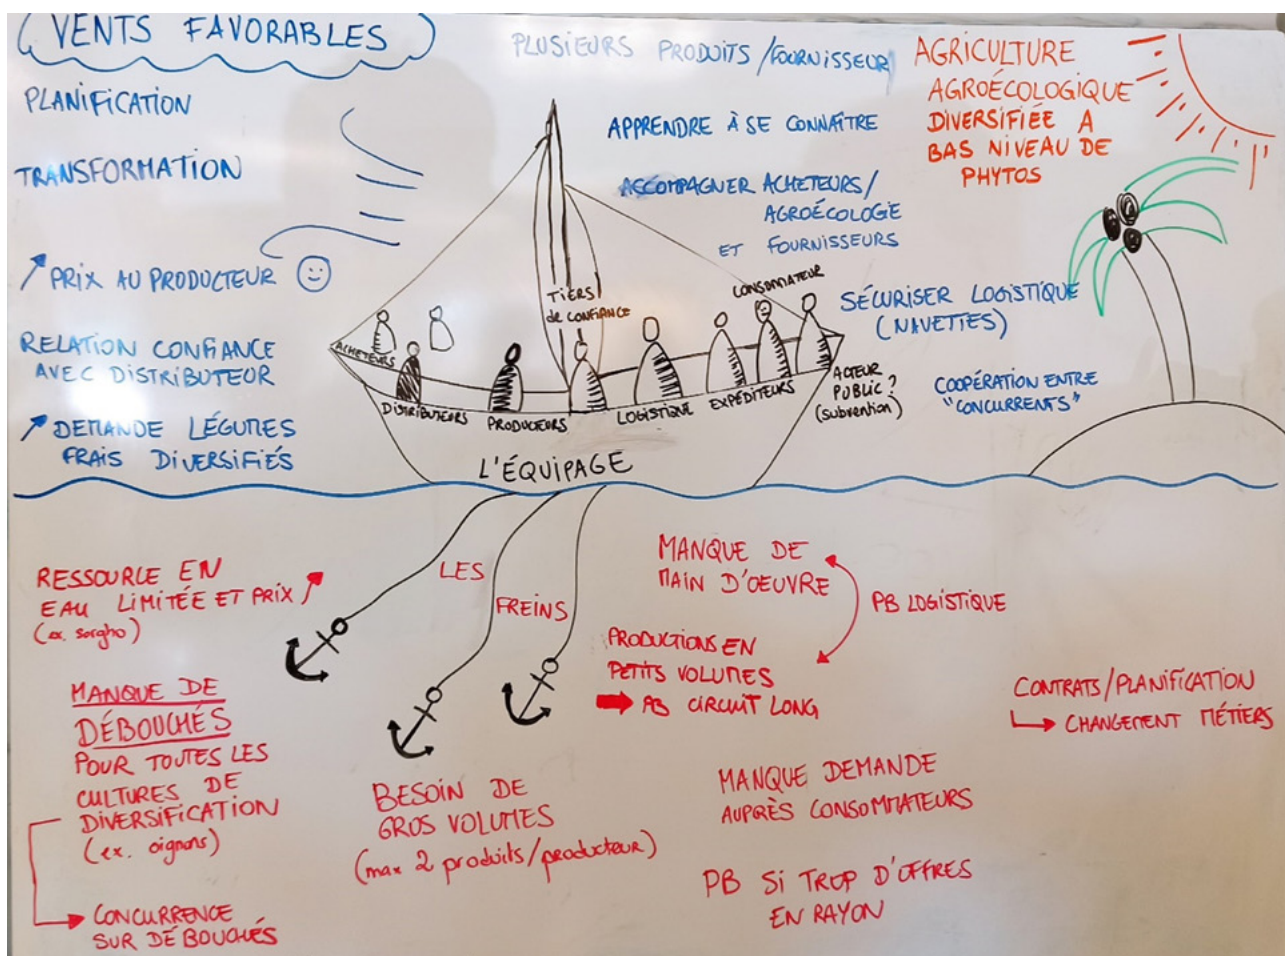 VENTS FAVORABLES
PLANIFICATION
TRANSFORMATION
↗ PRIX AU PRODUCTEUR
RELATION CONFIANCE
AVEC DISTRIBUTEUR
↗ DEMANDE LÉGUMES
FRAIS DIVERSIFIÉS
PLUSIEURS PRODUITS/FOURNISSEUR
APPRENDRE À SE CONNAÎTRE
ACCOMPAGNER ACHETEURS/
AGROÉCOLOGIE
ET FOURNISSEURS
SÉCURISER LOGISTIQUE
(NAVETTES)
COOPÉRATION ENTRE
"CONCURRENTS"
AGRICULTURE
AGROÉCOLOGIQUE
DIVERSIFIÉE A
BAS NIVEAU DE
PHYTOS
ACHETEURS
DISTRIBUTEURS
PRODUCTEURS
TIERS
de CONFIANCE
LOGISTIQUE
EXPÉDITEURS
CONSOMMATEUR
ACTEUR
PUBLIC ?
(subvention)
L'ÉQUIPAGE
LES
FREINS
RESSOURCE EN
EAU LIMITÉE ET PRIX ↗
(ex. sorgho)
MANQUE DE
DÉBOUCHÉS
POUR TOUTES LES
CULTURES DE
DIVERSIFICATION
(ex. oignons)
→ CONCURRENCE
SUR DÉBOUCHÉS
BESOIN DE
GROS VOLUMES
(max 2 produits/producteur)
MANQUE DE
MAIN D'OEUVRE
PB LOGISTIQUE
PRODUCTIONS EN
PETITS VOLUMES
➡ PB CIRCUIT LONG
MANQUE DEMANDE
AUPRÈS CONSOMMATEURS
PB SI TROP D'OFFRES
EN RAYON
CONTRATS/PLANIFICATION
↳ CHANGEMENT MÉTIERS